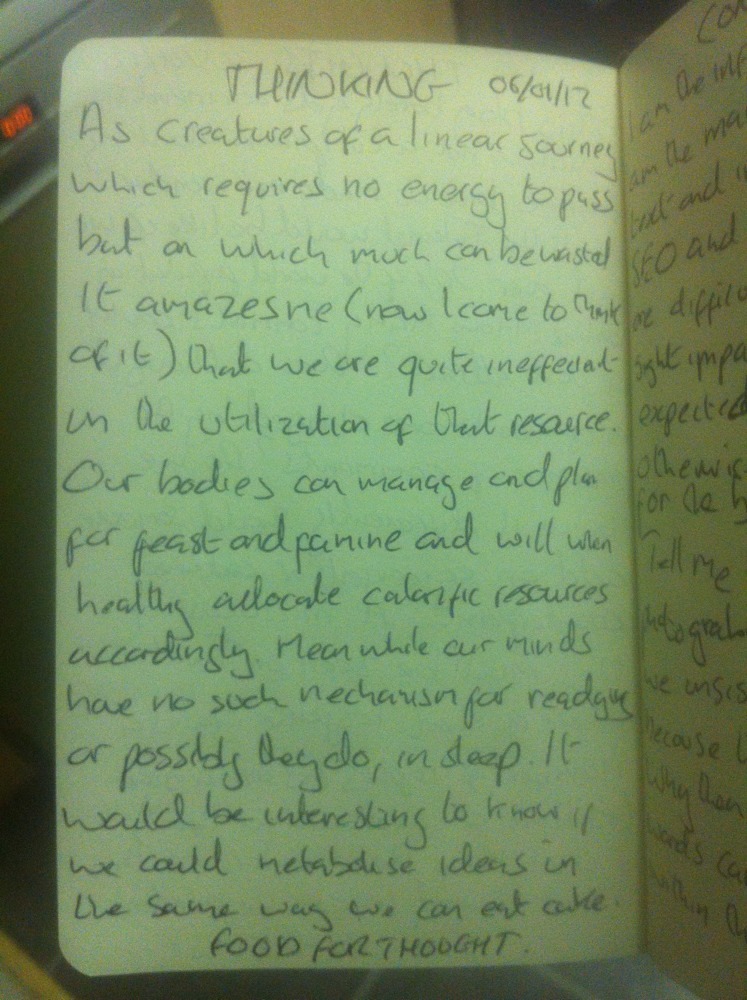 THINKING 06/01/12
As creatures of a linear journey
which requires no energy to pass
but on which much can be wasted
It amazes me (now I come to think
of it) that we are quite ineffecient
in the utilization of that resource.
Our bodies can manage and plan
for feast and famine and will when
healthy allocate calorific resources
accordingly. Meanwhile our minds
have no such mechanism for readying
or possibly they do, in sleep. It
would be interesting to know if
we could metabolise ideas in
the same way we can eat cake.
FOOD FOR THOUGHT.
I am the
am the
text and
SEO and
are
sight
expected
for the
Tell me
we
Why then
words
within